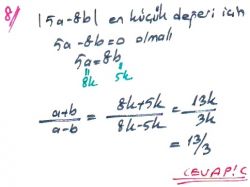 8/ |5a-8b| en küçük değeri için
5a-8b=0 olmalı
5a=8b
8k 5k
a+b/a-b = 8k+5k/8k-5k = 13k/3k
= 13/3
CEVAP: C